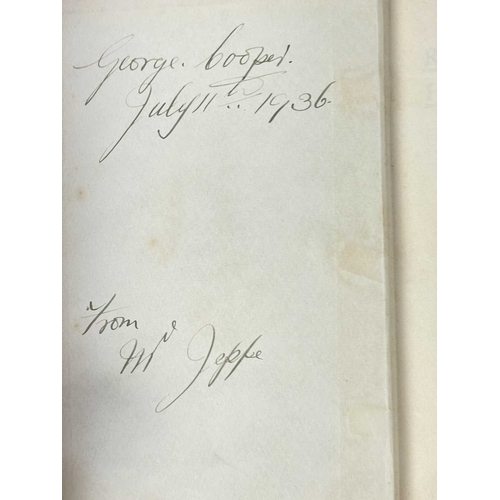 George. Cooper.
July 11th. 1936.
From
Mr Jeppe